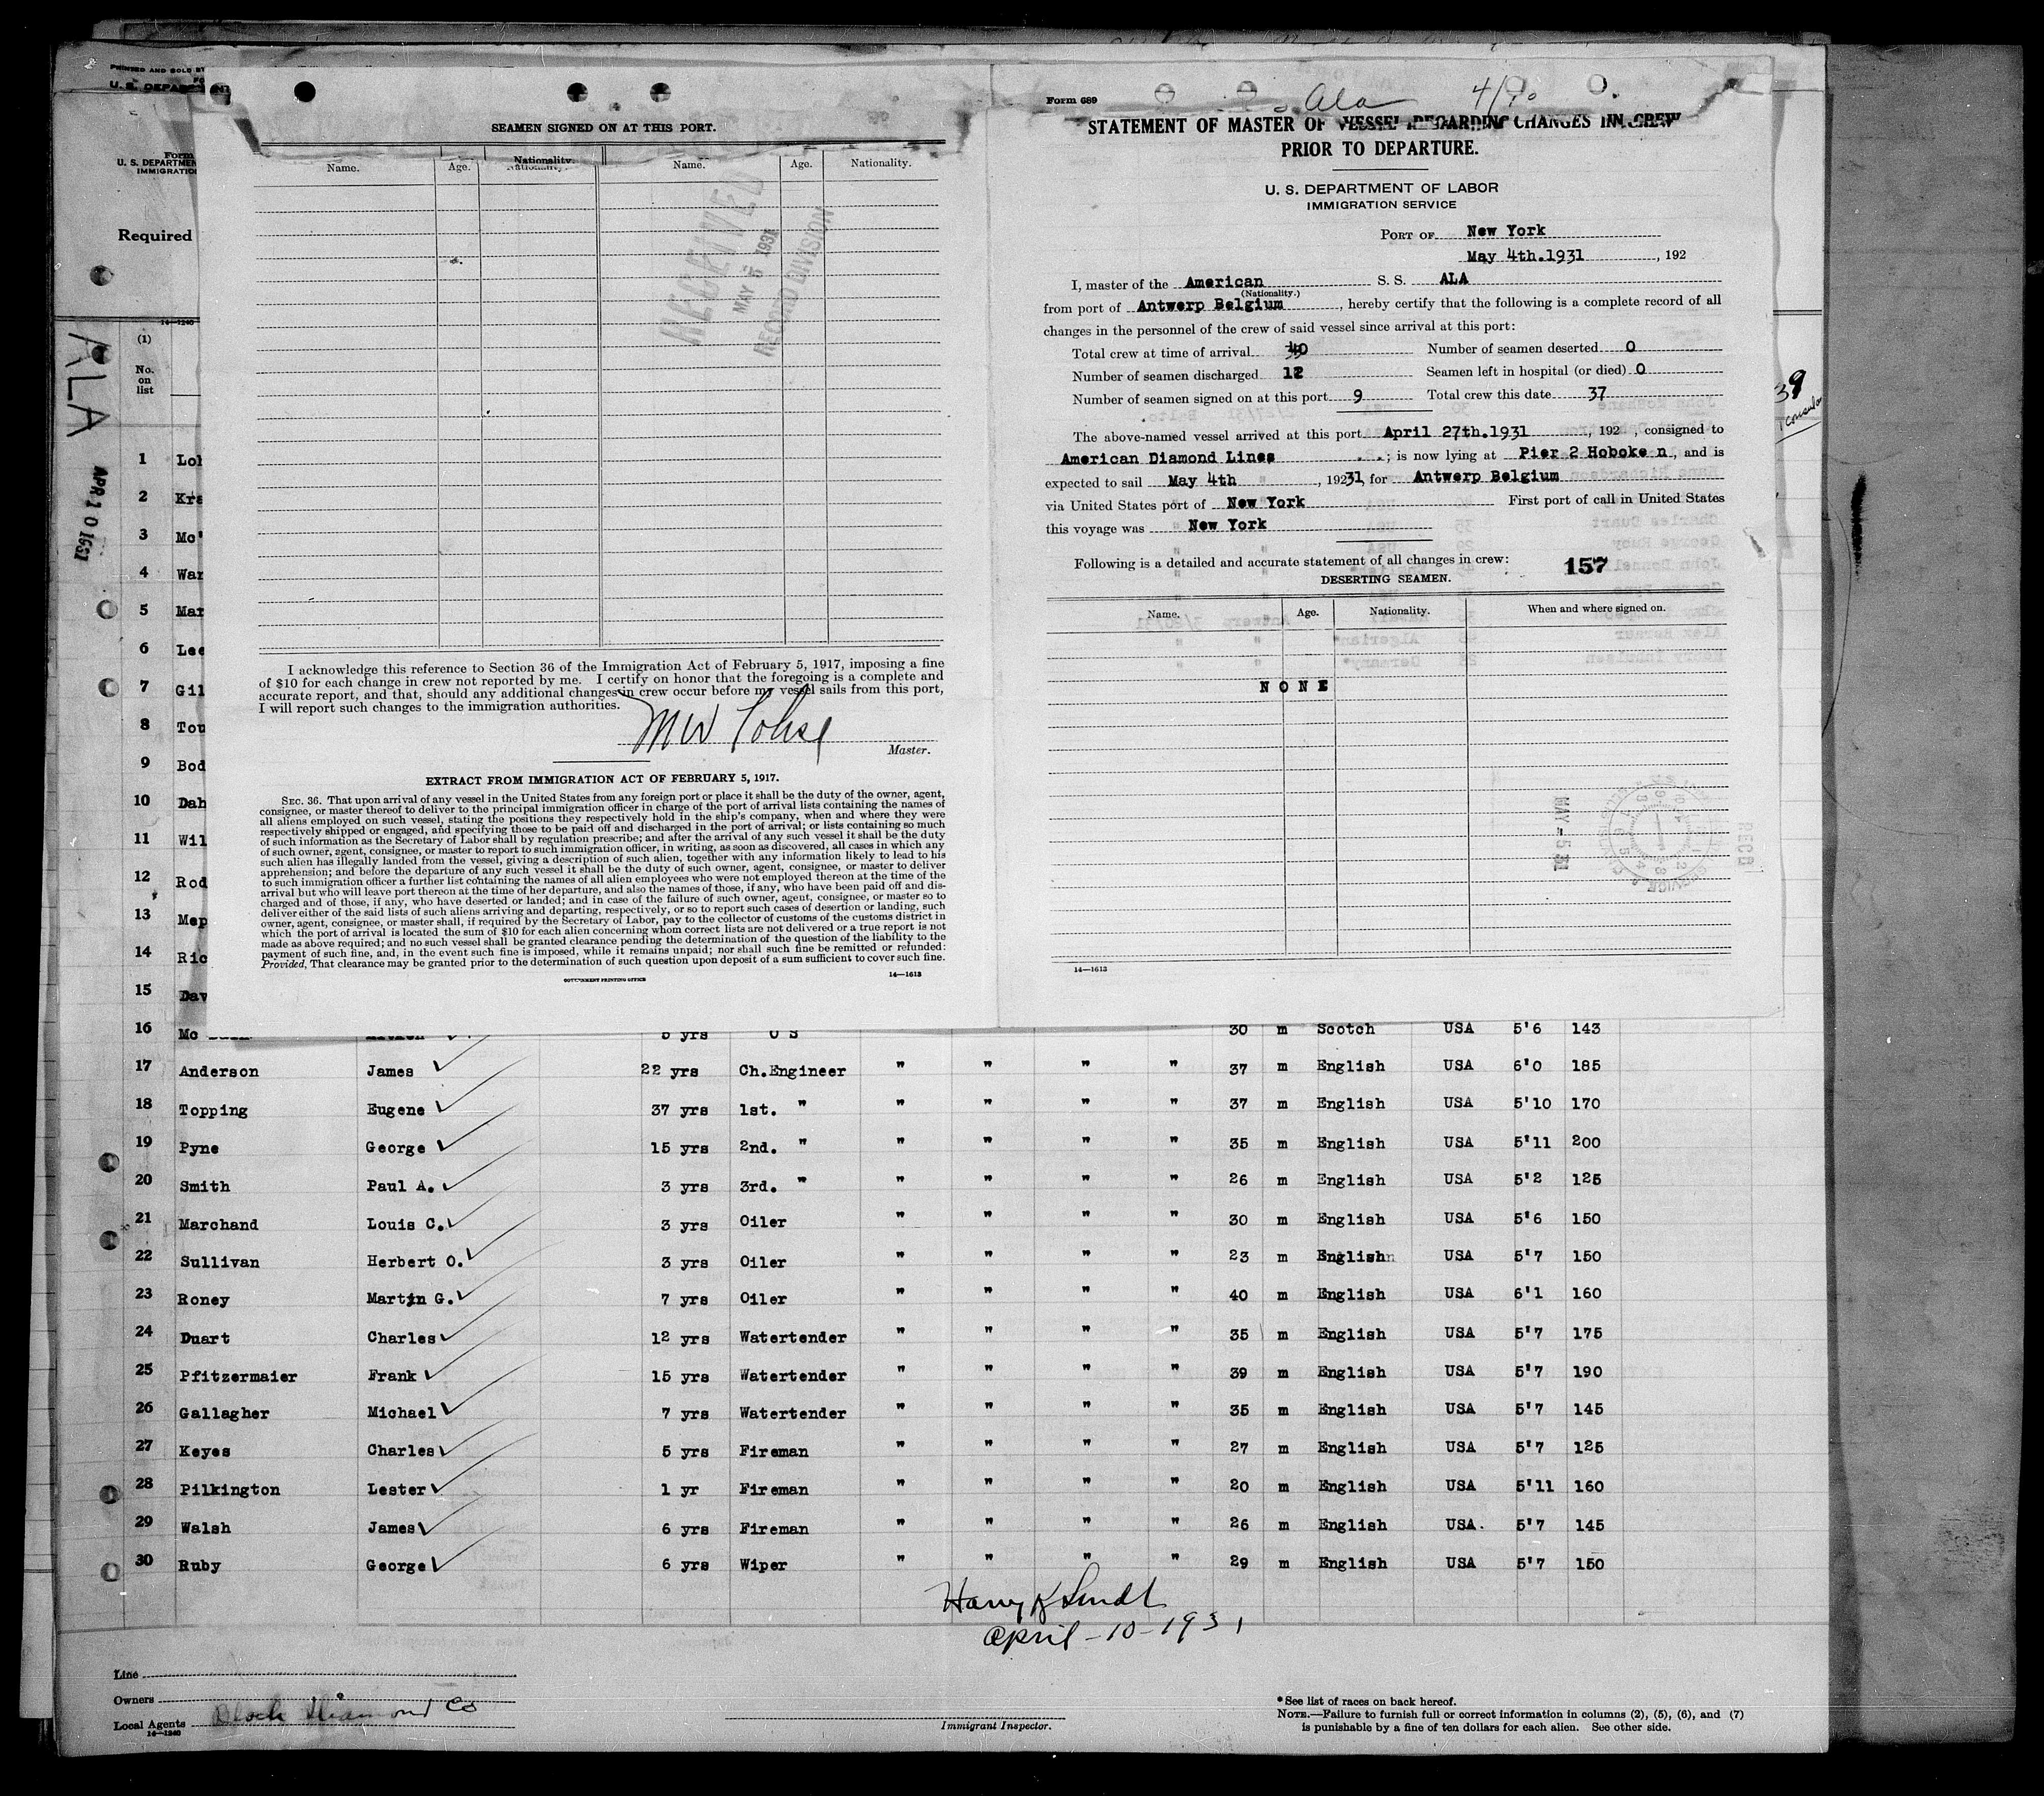 PRINTED AND SOLD BY
U. S. DEPAR
Form
U. S. DEPARTMEN
IMMIGRATIO
Required
14—1240
(1)
No.
on
list
ALA
APR 10 1931
SEAMEN SIGNED ON AT THIS PORT.
Name. Age. Nationality. Name. Age. Nationality.
RECEIVED
MAY 5 1931
RECORD DIVISION
I acknowledge this reference to Section 36 of the Immigration Act of February 5, 1917, imposing a fine
of $10 for each change in crew not reported by me. I certify on honor that the foregoing is a complete and
accurate report, and that, should any additional changes in crew occur before my vessel sails from this port,
I will report such changes to the immigration authorities.
MW Lohse
Master.
EXTRACT FROM IMMIGRATION ACT OF FEBRUARY 5, 1917.
SEC. 36. That upon arrival of any vessel in the United States from any foreign port or place it shall be the duty of the owner, agent,
consignee, or master thereof to deliver to the principal immigration officer in charge of the port of arrival lists containing the names of
all aliens employed on such vessel, stating the positions they respectively hold in the ship's company, when and where they were
respectively shipped or engaged, and specifying those to be paid off and discharged in the port of arrival; or lists containing so much
of such information as the Secretary of Labor shall by regulation prescribe; and after the arrival of any such vessel it shall be the duty
of such owner, agent, consignee, or master to report to such immigration officer, in writing, as soon as discovered, all cases in which any
such alien has illegally landed from the vessel, giving a description of such alien, together with any information likely to lead to his
apprehension; and before the departure of any such vessel it shall be the duty of such owner, agent, consignee, or master to deliver
to such immigration officer a further list containing the names of all alien employees who were not employed thereon at the time of the
arrival but who will leave port thereon at the time of her departure, and also the names of those, if any, who have been paid off and dis-
charged and of those, if any, who have deserted or landed; and in case of the failure of such owner, agent, consignee, or master so to
deliver either of the said lists of such aliens arriving and departing, respectively, or so to report such cases of desertion or landing, such
owner, agent, consignee, or master shall, if required by the Secretary of Labor, pay to the collector of customs of the customs district in
which the port of arrival is located the sum of $10 for each alien concerning whom correct lists are not delivered or a true report is not
made as above required; and no such vessel shall be granted clearance pending the determination of the question of the liability to the
payment of such fine, and, in the event such fine is imposed, while it remains unpaid; nor shall such fine be remitted or refunded:
Provided, That clearance may be granted prior to the determination of such question upon deposit of a sum sufficient to cover such fine.
14—1613
GOVERNMENT PRINTING OFFICE
Form 689
Ala 4/10
STATEMENT OF MASTER OF VESSEL REGARDING CHANGES IN CREW
PRIOR TO DEPARTURE.
U. S. DEPARTMENT OF LABOR
IMMIGRATION SERVICE
PORT OF New York
May 4th.1931, 192
I, master of the American S. S. ALA
(Nationality.)
from port of Antwerp Belgium, hereby certify that the following is a complete record of all
changes in the personnel of the crew of said vessel since arrival at this port:
Total crew at time of arrival 40 Number of seamen deserted 0
Number of seamen discharged 12 Seamen left in hospital (or died) 0
Number of seamen signed on at this port 9 Total crew this date 37
The above-named vessel arrived at this port April 27th.1931, 192 , consigned to
American Diamond Lines ; is now lying at Pier 2 Hoboke n, and is
expected to sail May 4th, 19231, for Antwerp Belgium
via United States port of New York First port of call in United States
this voyage was New York
Following is a detailed and accurate statement of all changes in crew: 157
DESERTING SEAMEN.
Name. Age. Nationality. When and where signed on.
N O N E
MAY - 5 31
14—1613
39
1 Loh
2 Kra
3 Mc'
4 War
5 Mar
6 Lee
7 Gil
8 Tou
9 Bod
10 Dah
11 Wil
12 Rod
13 Mep
14 Ric
15 Dav
16 Mc 5 yrs O S 30 m Scotch USA 5'6 143
17 Anderson James 22 yrs Ch.Engineer " " " " 37 m English USA 6'0 185
18 Topping Eugene 37 yrs 1st. " " " " " 37 m English USA 5'10 170
19 Pyne George 15 yrs 2nd. " " " " " 35 m English USA 5'11 200
20 Smith Paul A. 3 yrs 3rd. " " " " " 26 m English USA 5'2 125
21 Marchand Louis C. 3 yrs Oiler " " " " 30 m English USA 5'6 150
22 Sullivan Herbert O. 3 yrs Oiler " " " " 23 m English USA 5'7 150
23 Roney Martin G. 7 yrs Oiler " " " " 40 m English USA 6'1 160
24 Duart Charles 12 yrs Watertender " " " " 35 m English USA 5'7 175
25 Pfitzermaier Frank 15 yrs Watertender " " " " 39 m English USA 5'7 190
26 Gallagher Michael 7 yrs Watertender " " " " 35 m English USA 5'7 145
27 Keyes Charles 5 yrs Fireman " " " " 27 m English USA 5'7 125
28 Pilkington Lester 1 yr Fireman " " " " 20 m English USA 5'11 160
29 Walsh James 6 yrs Fireman " " " " 26 m English USA. 5'7 145
30 Ruby George 6 yrs Wiper " " " " 29 m English USA 5'7 150
Harry K
April-10-1931
Line
Owners
Local Agents Black Diamond Co
14—1240
Immigrant Inspector.
*See list of races on back hereof.
NOTE.—Failure to furnish full or correct information in columns (2), (5), (6), and (7)
is punishable by a fine of ten dollars for each alien. See other side.